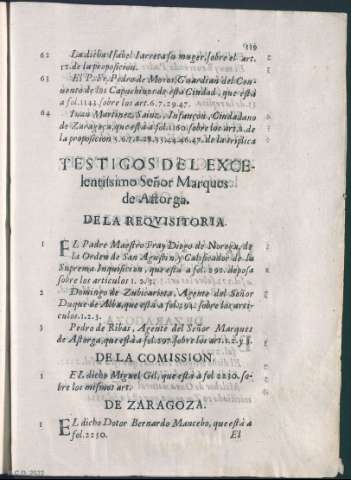 62 La dicha Isabel Iarreta su muger, sobre el art.
12. de la proposicion.
63 El P. Fr. Pedro de Moros, Guardian del Con-
uento de los Capuchinos de esta Ciudad, que está
a fol. 1143. sobre los art. 6. 7. 29. 47.
64 Iuan Martinez, Sainz, Infançon, Ciudadano
de Zaragoça, que está a fol. 1160. sobre los art. 2. de
la proposicion 5. 6. 7. 8. 28. 35. 44. 46. 47. de la triplica
TESTIGOS DEL EXCE-
lentissimo Señor Marques
de Astorga.
DE LA REQVISITORIA.
1 EL Padre Maestro Fray Diego de Noroña, de
la Orden de San Agustin, y Calificador de la
Suprema Inquisicion, que està a fol. 292. deposa
sobre los articulos 1. 2. 3.
2 Domingo de Zubicarieta, Agente del Señor
Duque de Alba, que està a fol. sobre los arti-
culos. 1. 2. 3.
3 Pedro de Ribas, Agente del Señor Marques
de Astorga, que está a fol. 297. sobre los art. 1. 2. y 3.
DE LA COMISSION.
1 EL dicho Miguel Gil, que està a fol 2230. so-
bre los mismos art.
DE ZARAGOZA.
1 EL dicho Dotor Bernardo Mancebo, que está a
fol. 2250. El